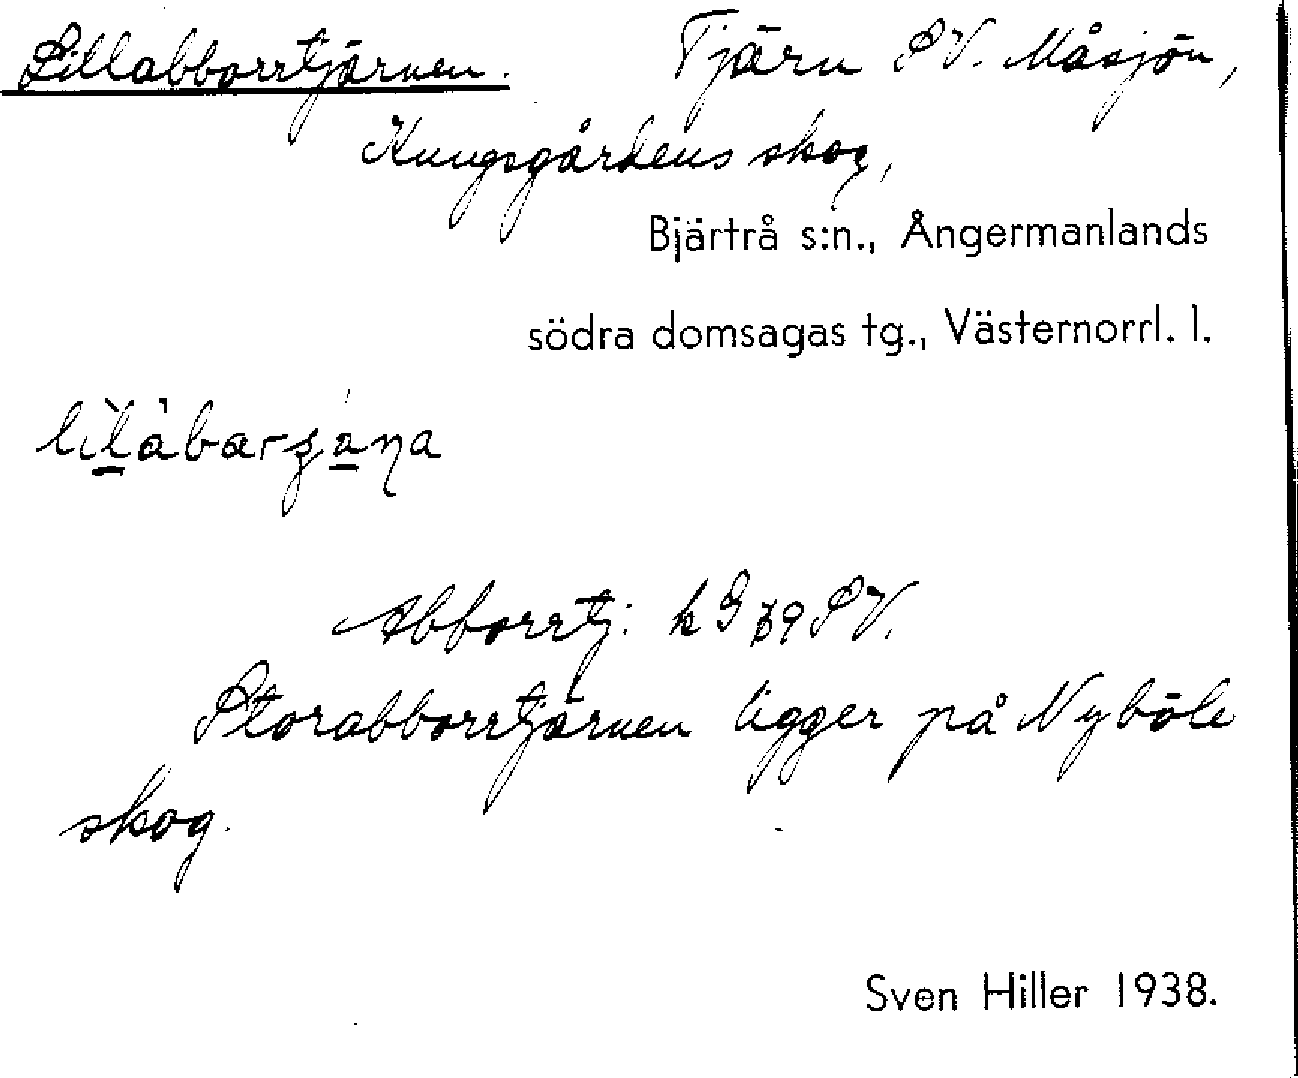 Lillabborrtjärnen. Tjärn SV. Måsjön,
Kungsgårdens skog,
Bjärtrå s:n., Ångermanlands
södra domsagas tg., Västernorrl. l.
Abborrtj: k G 39 SV.
Storabborrtjärnen ligger på Nyböle
skog.
Sven Hiller 1938.